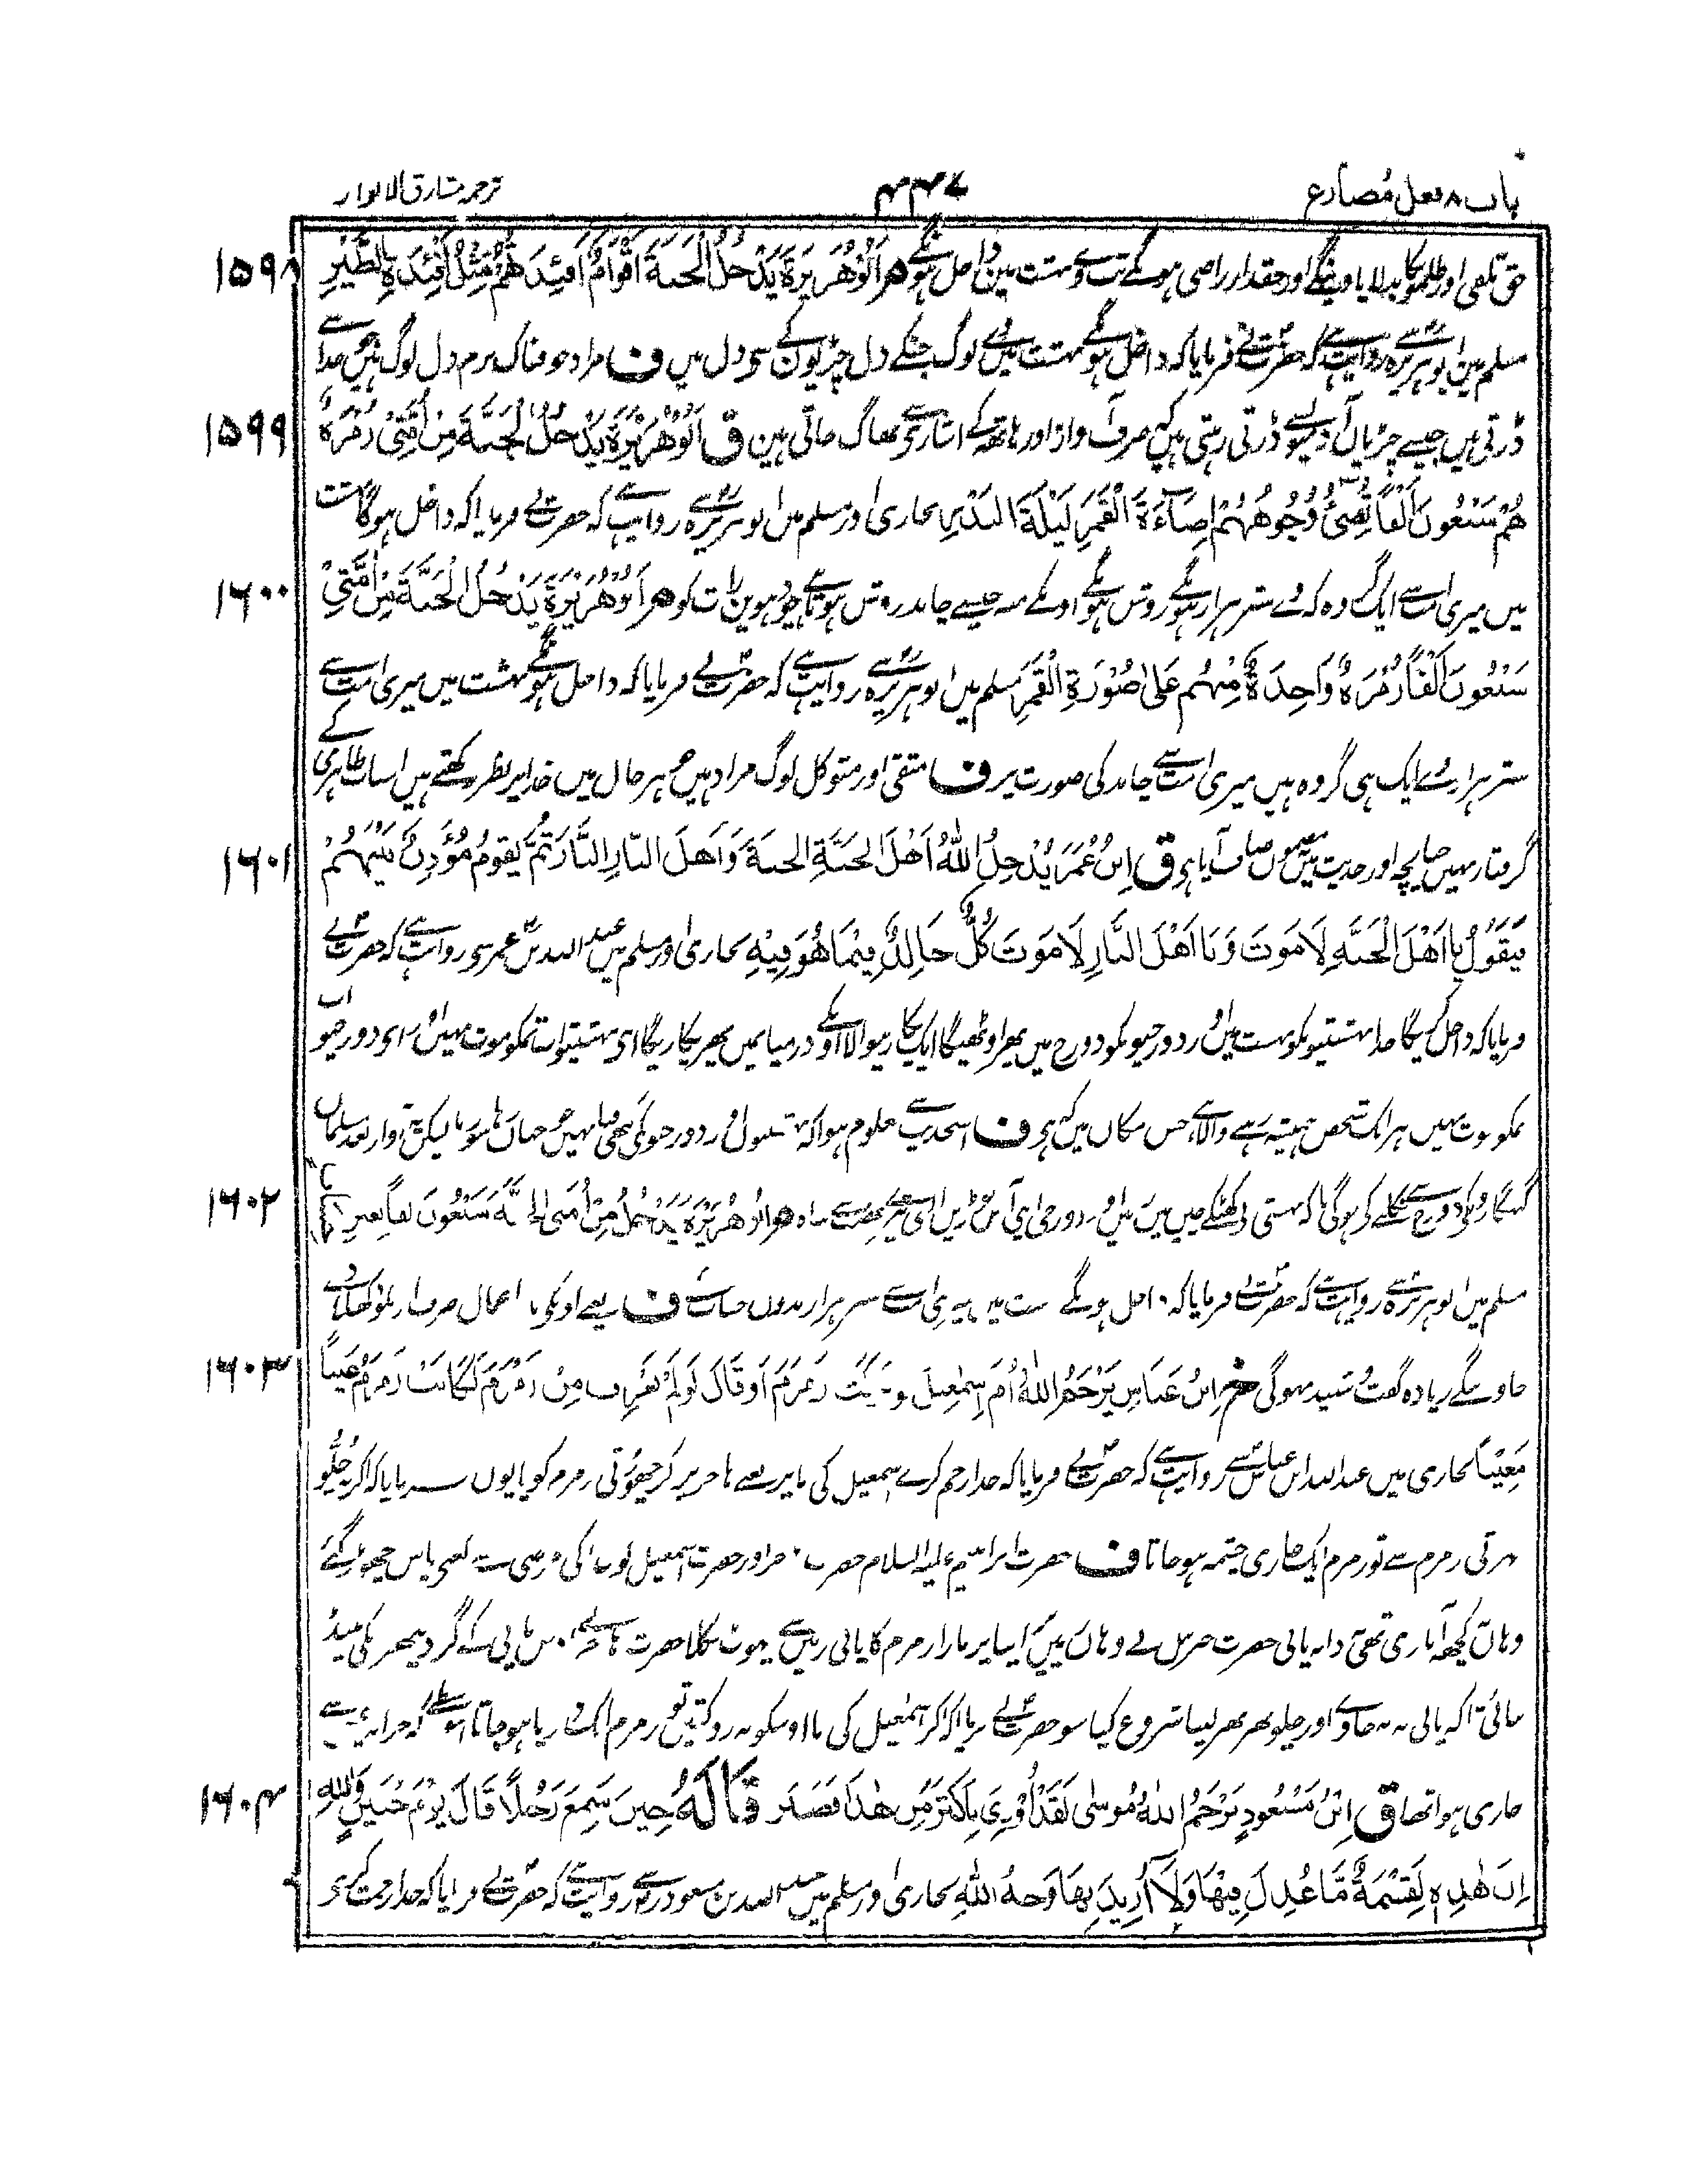 باب ۸ فعل مضارع
۴۴۷
ترجمہ مشارق الانوار
حق تلفی اور ظلموں کا بدلا پاوینگے اور حقدار راضی ہو کے تب وے بہشت میں داخل ہونگے م اَبُوْهُرَيْرَةَ يَدْخُلُ الْجَنَّةَ اَقْوَامٌ اَفْئِدَتُهُمْ مِثْلُ اَفْئِدَةِ الطَّيْرِ
۱۵۹۸
مسلم میں ابو ہریرہ سے روایت ہے کہ حضرت نے فرمایا کہ داخل ہونگے بہشت میں ایسے لوگ جنکے دل چڑیوں کے سی دل ہیں ف مراد خوفناک نرم دل لوگ ہیں جو خدا سے
ڈرتی ہیں جیسے چڑیاں آدمیوں سے ڈرتی رہتی ہیں کہ صرف آواز اور ہاتھ کے اشارے سے بھاگ جاتی ہین ق اَبُوْهُرَيْرَةَ يَدْخُلُ الْجَنَّةَ مِنْ اُمَّتِيْ زُمْرَةٌ
۱۵۹۹
هُمْ سَبْعُونَ اَلْفًا تُضِيْئُ وُجُوْهُهُمْ اِضَاءَةَ الْقَمَرِ لَيْلَةَ الْبَدْرِ بخاری اور مسلم میں ابو ہریرہ سے روایت ہے کہ حضرت نے فرمایا کہ داخل ہوگا بہشت
میں میری امت سے ایک گروہ کہ وے ستر ہزار ہونگے روشن ہونگے اونکے منہ جیسے چاند روشن ہوتا ہے چودہوین رات کو م اَبُوْهُرَيْرَةَ يَدْخُلُ الْجَنَّةَ مِنْ اُمَّتِيْ
۱۶۰۰
سَبْعُونَ اَلْفًا زُمْرَةٌ وَاحِدَةٌ مِنْهُم عَلٰى صُوْرَةِ الْقَمَرِ مسلم میں ابو ہریرہ سے روایت ہے کہ حضرت نے فرمایا کہ داخل ہونگے بہشت میں میری امت سے
ستر ہزار وے ایک ہی گروہ ہیں میری امت سے چاند کی صورت پر ف متقی اور متوکل لوگ مراد ہیں جو ہر حال میں خدا پر نظر رکھتے ہیں اسباب ظاہری کے
گرفتار نہیں چنانچہ اور حدیث میں یہ مضمون صاف آیا ہو ق اِبْنُ عُمَرَ يُدْخِلُ اللهُ اَهْلَ الْجَنَّةِ الْجَنَّةَ وَاَهْلَ النَّارِ النَّارَ ثُمَّ يَقُومُ مُؤَذِّنٌ بَيْنَهُمْ
۱۶۰۱
فَيَقُولُ يَا اَهْلَ الْجَنَّةِ لَا مَوْتَ وَيَا اَهْلَ النَّارِ لَا مَوْتَ كُلٌّ خَالِدٌ فِيْمَا هُوَ فِيْهِ بخاری اور مسلم میں عبد اللہ بن عمر سے روایت ہے کہ حضرت نے
فرمایا کہ داخل کریگا خدا بہشتیونکو بہشت میں اور دوزخیونکو دوزخ میں پھر اوٹھیگا ایک پکارنیوالا اونکے درمیاں میں پھر پکاریگا ای بہشتیو اب تمکو موت نہیں اور ای دوزخیو اب
تمکو موت نہیں ہر ایک شخص ہمیشہ رہنے والا ہے جس مکان میں کہ ہو ف اس حدیث سے معلوم ہوا کہ
گنہگارونکو دوزخ سے نکلنے کے ہوگی م اَبُوْهُرَيْرَةَ يَدْخُلُ مِنْ اُمَّتِى الْجَنَّةَ سَبْعُونَ اَلْفًا بِغَيْرِ
۱۶۰۲
مسلم میں ابو ہریرہ سے روایت ہے کہ حضرت نے فرمایا کہ داخل ہونگے بہشت میں میری امت سے ستر ہزار بدون حساب کے ف یعنے اونکو
جاوینگے زیادہ گفت شنید نہوگی خ اِبْنُ عَبَّاسٍ يَرْحَمُ اللهُ اُمَّ اِسْمٰعِيلَ لَوْ تَرَكَتْ زَمْزَمَ اَوْ قَالَ لَوْ لَمْ تَغْرِفْ مِنْ زَمْزَمَ لَكَانَتْ زَمْزَمُ عَيْنًا
۱۶۰۳
مَعِيْنًا بخاری میں عبد اللہ ابن عباس سے روایت ہے کہ حضرت نے فرمایا کہ خدا رحم کرے اسمعیل کی ما پر یعنے ہاجر پر گر چھوڑتی زمزم کو یا یوں فرمایا کہ اگر چلو
بھرتی زمزم سے تو زمزم ایک جاری چشمہ ہو جاتا ف حضرت ابراہیم علیہ السلام حضرت ہاجر اور حضرت اسمعیل کو چھوڑ گئے
وہاں کچھ آبادی تھی نہ پانی حضرت جبرئیل نے وہاں پر مارا زمزم کا پانی زمین سے نکلا حضرت ہاجر نے پانی کے گرد پتھر کی مینڈ
بنائی تاکہ پانی بہ نہ جاوے اور چلو بھر بھر لینا شروع کیا سو حضرت نے فرمایا کہ اگر اسمعیل کی ما اوسکو نہ روکتی تو زمزم ایک دریا ہو جاتا
جاری ہوا تھا ق اِبْنُ مَسْعُودٍ يَرْحَمُ اللهُ مُوسٰى لَقَدْ اُوْذِيَ بِاَكْثَرَ مِنْ هٰذَا فَصَبَرَ قَالَهُ حِينَ سَمِعَ رَجُلًا قَالَ يَوْمَ حُنَيْنٍ وَاللهِ
۱۶۰۴
اِنَّ هٰذِهٖ لَقِسْمَةٌ مَّا عُدِلَ فِيْهَا وَلَا اُرِيدَ بِهَا وَجْهُ اللهِ بخاری اور مسلم میں عبد اللہ بن مسعود سے روایت ہے کہ حضرت نے فرمایا کہ خدا رحمت کرے